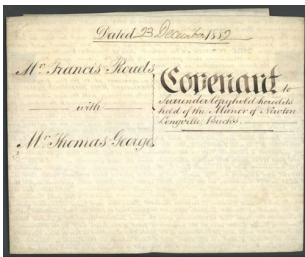 Dated 23 December 1882
Mr. Francis Roads
with
Mr. Thomas George
Covenant to
surrender copyhold heredits
held of the Manor of Newton
Longville, Bucks.